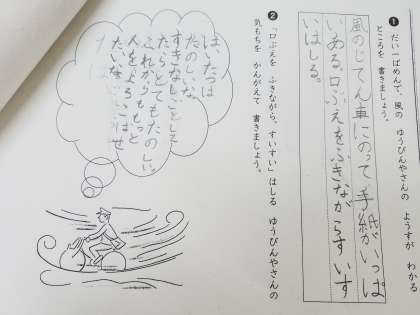 ❶ だい一ばめんで、風の ゆうびんやさんの ようすが わかる
ところを 書きましょう。
風のじてん車にのって、手紙がいっぱ
いある。口ぶえをふきながらすいす
いはしる。
❷ 「口ぶえを ふきながら、すいすい」はしる ゆうびんやさんの
気もちを かんがえて 書きましょう。
はいたつは
たのしいな。
すきなしごとをし
たらとてもたのしい。
これからももっと
人をよろこばせ
たいな